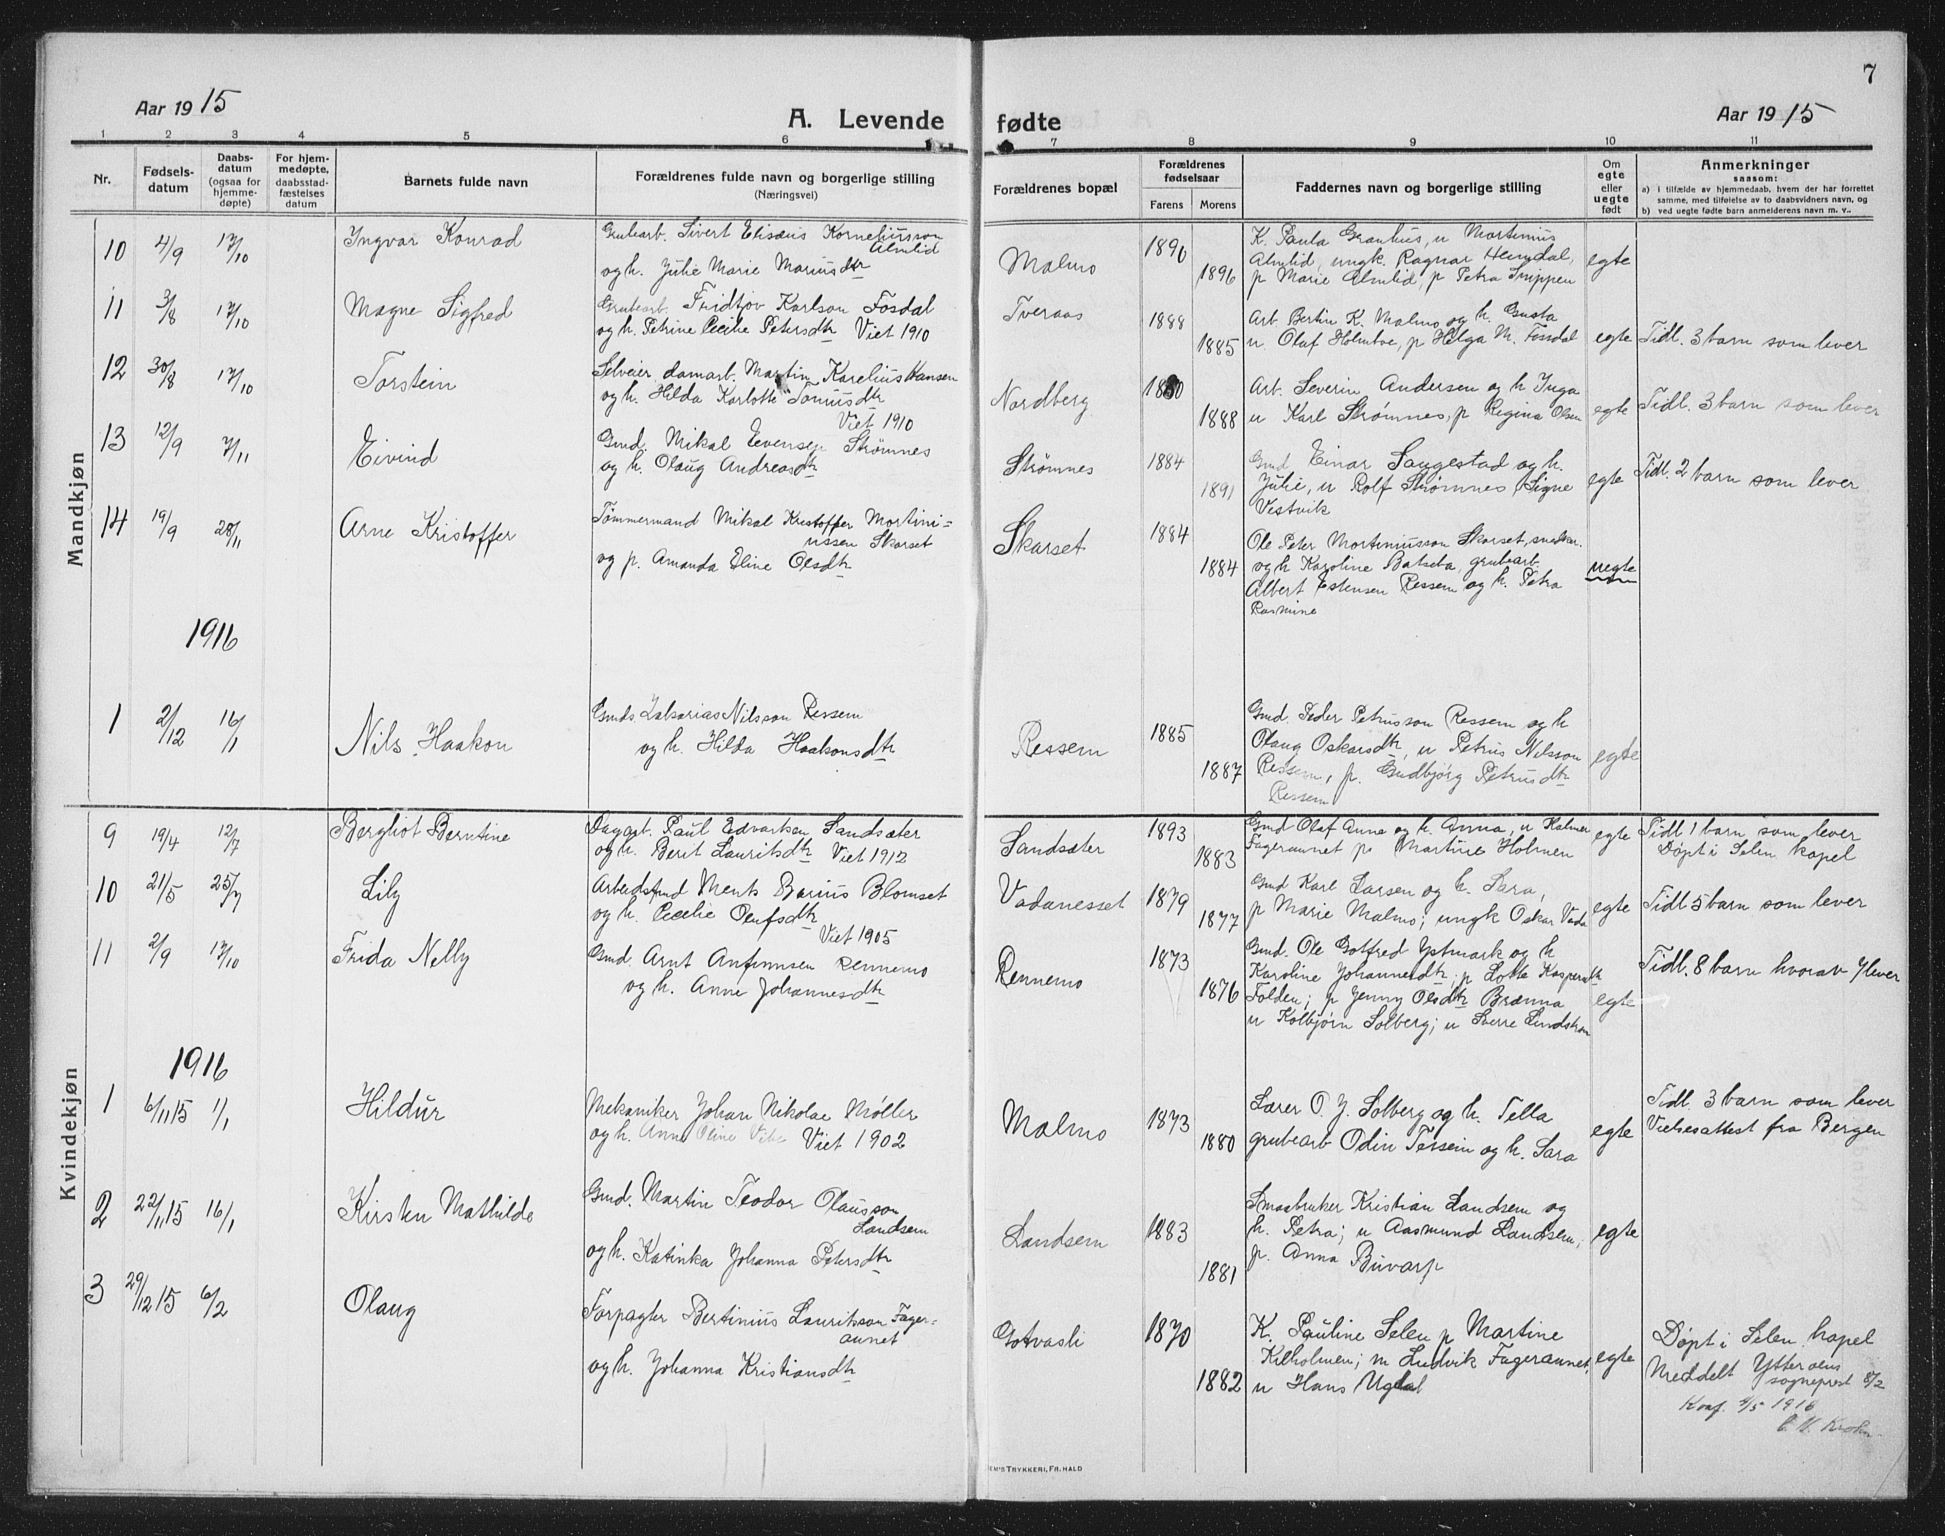 7
Aar 1915
A. Levende
fødte
Aar 1915
1 2 3 4 5 6 7 8 9 10 11
Nr.
Fødsels-
datum
Daabs-
datum
(ogsaa for
hjemme-
døpte)
For hjem-
medøpte,
daabsstad-
fæstelses
datum
Barnets fulde navn
Forældrenes fulde navn og borgerlige stilling
(Næringsvei)
Forældrenes bopæl
Forældrenes
fødselsaar
Farens
Morens
Faddernes navn og borgerlige stilling
Om
egte
eller
uegte
født
Anmerkninger
saasom:
a) i tilfælde av hjemmedaab, hvem der har forrettet
samme, med tilføielse av to daabsvidners navn, og
b) ved uegte fødte barn anmelderens navn m. v..
Mandkjøn
10 4/9 17/10 Ingvar Konrad
Grubearb. Sivert Elisæus Korneliusson
Almlid
og h. Julie Marie Mariusdtr
Malmo 1890 1896
K. Paula Granhus, u Martinius
Almlid, ungk. Ragnar Hemdal,
p Marie Almlid, p Petra Snippen
egte
11 3/8 17/10 Magne Sigfred
Grubearb. Fridtjov Karlson Fosdal
og h. Petrine Cecilie Petersdtr Viet 1910
Tveraas 1888 1885
Arb Bertin K. Malmo og h. Gusta
u. Olaf Holmboe, p Helga M. Fossdal
egte
Tidl. 3 barn som lever
12 30/8 17/10 Torstein
Selveier, damarb. Martin Karelius Hansen
og h. Hilda Karlotte Toniusdtr
Viet 1910
Nordberg 1880 1888
Arb. Severin Andersen og h Inga
u Karl Strømnes, p Regina Olsen
egte
Tidl. 3 barn som lever
13 12/9 7/11 Eivind
Gmd. Mikal Evensen Strømnes
og h. Olaug Andreasdtr
Strømnes 1884 1891
Gmd Einar Saugestad og h.
Julie, u Rolf Strømnes, Signe
Vestvik
egte
Tidl. 2 barn som lever
14 19/9 28/11 Arne Kristoffer
Tømmermand Mikal Kristoffer Mortini-
ussen Skarset
og p. Amanda Eline Olsdtr
Skarset 1884 1884
Ole Peter Mortiniusson Skarset, snedker
og h Karoline Batseba, grubearb.
Albert Estensen Ressem og h. Petra
Rasmine
uegte
1916
1 2/12 16/1 Nils Haakon
Gmds Zakarias Nilsson Ressem
og h. Hilda Haakonsdtr
Ressem 1885 1887
Gmd. Peder Petrusson Ressem og h
Olaug Oskarsdtr, u Petrus Nilsson
Ressem, p. Gudbjørg Petrusdtr
Ressem
egte
Kvindekjøn
9 19/4 12/7 Bergliot Berntine
Dagarb. Paul Edvartsen Sandsæter
og h. Berit Lauritsdtr Viet 1912
Sandsæter 1893 1883
Gmd Olaf Aune og h. Anna, u Halmer
Fageraunet p Martine Holmen
egte
Tidl 1 barn som lever
Døpt i Selen kapel
10 21/5 25/7 Lily
Arbeidsfmd Ments Barius Blomset
og h. Cecilie Olufsdtr
Viet 1905
Vadanesset 1879 1877
Gmd Karl Larsen og h. Sara,
p Marie Malmo; ungk Oskar Vada
egte
Tidl 5 barn som lever
11 2/9 17/10 Frida Nelly
Gmd Arnt Antinnsen Rennemo
og h. Anne Johannesdtr
Rennemo 1873 1876
Gmd. Ole Gotfred Ystmark og h
Karoline Johannesdtr, p Lotte Kaspersdtr
Folden; p Jenny Olsdtr Brænna
u Kolbjørn Solberg; u Sverre Lindstrøm
egte
Tidl. 8 barn hvorav 7 lever
1916
1 6/11 15 1/1 Hildur
Mekaniker Johan Nikolae Møller
og h. Anne Oline Vibe Viet 1902
Malmo 1873 1880
Lærer O. J. Solberg og h. Tella
grubearb Odin Tessem og h. Sara
egte
Tidl. 3 barn som lever
Vielsesattest fra Bergen
2 22/11 15 16/1 Kirsten Mathilde
Gmd. Martin Teodor Olausson
Landsem
og h. Katinka Johanna Petersdtr
Landsem 1883 1881
Smaabruker Kristian Landsem og
h. Petra; u Aasmund Landsem,
p. Anna Buvarp
egte
3 29/12 15 6/2 Olaug
Forpagter Bertinius Lauritsson Fager-
aunet
og h. Johanna Kristiansdtr
Gotvasli 1870 1882
K. Pauline Selen p Martine
Kilholmen; m Ludvik Fageraunet,
u Hans Ugdal
egte
Døpt i Selen kapel
Meddelt Ytterøens
sogneprest 8/2
Konf. 4/5 1916
EM'S TRYKKERI, FR. HALD